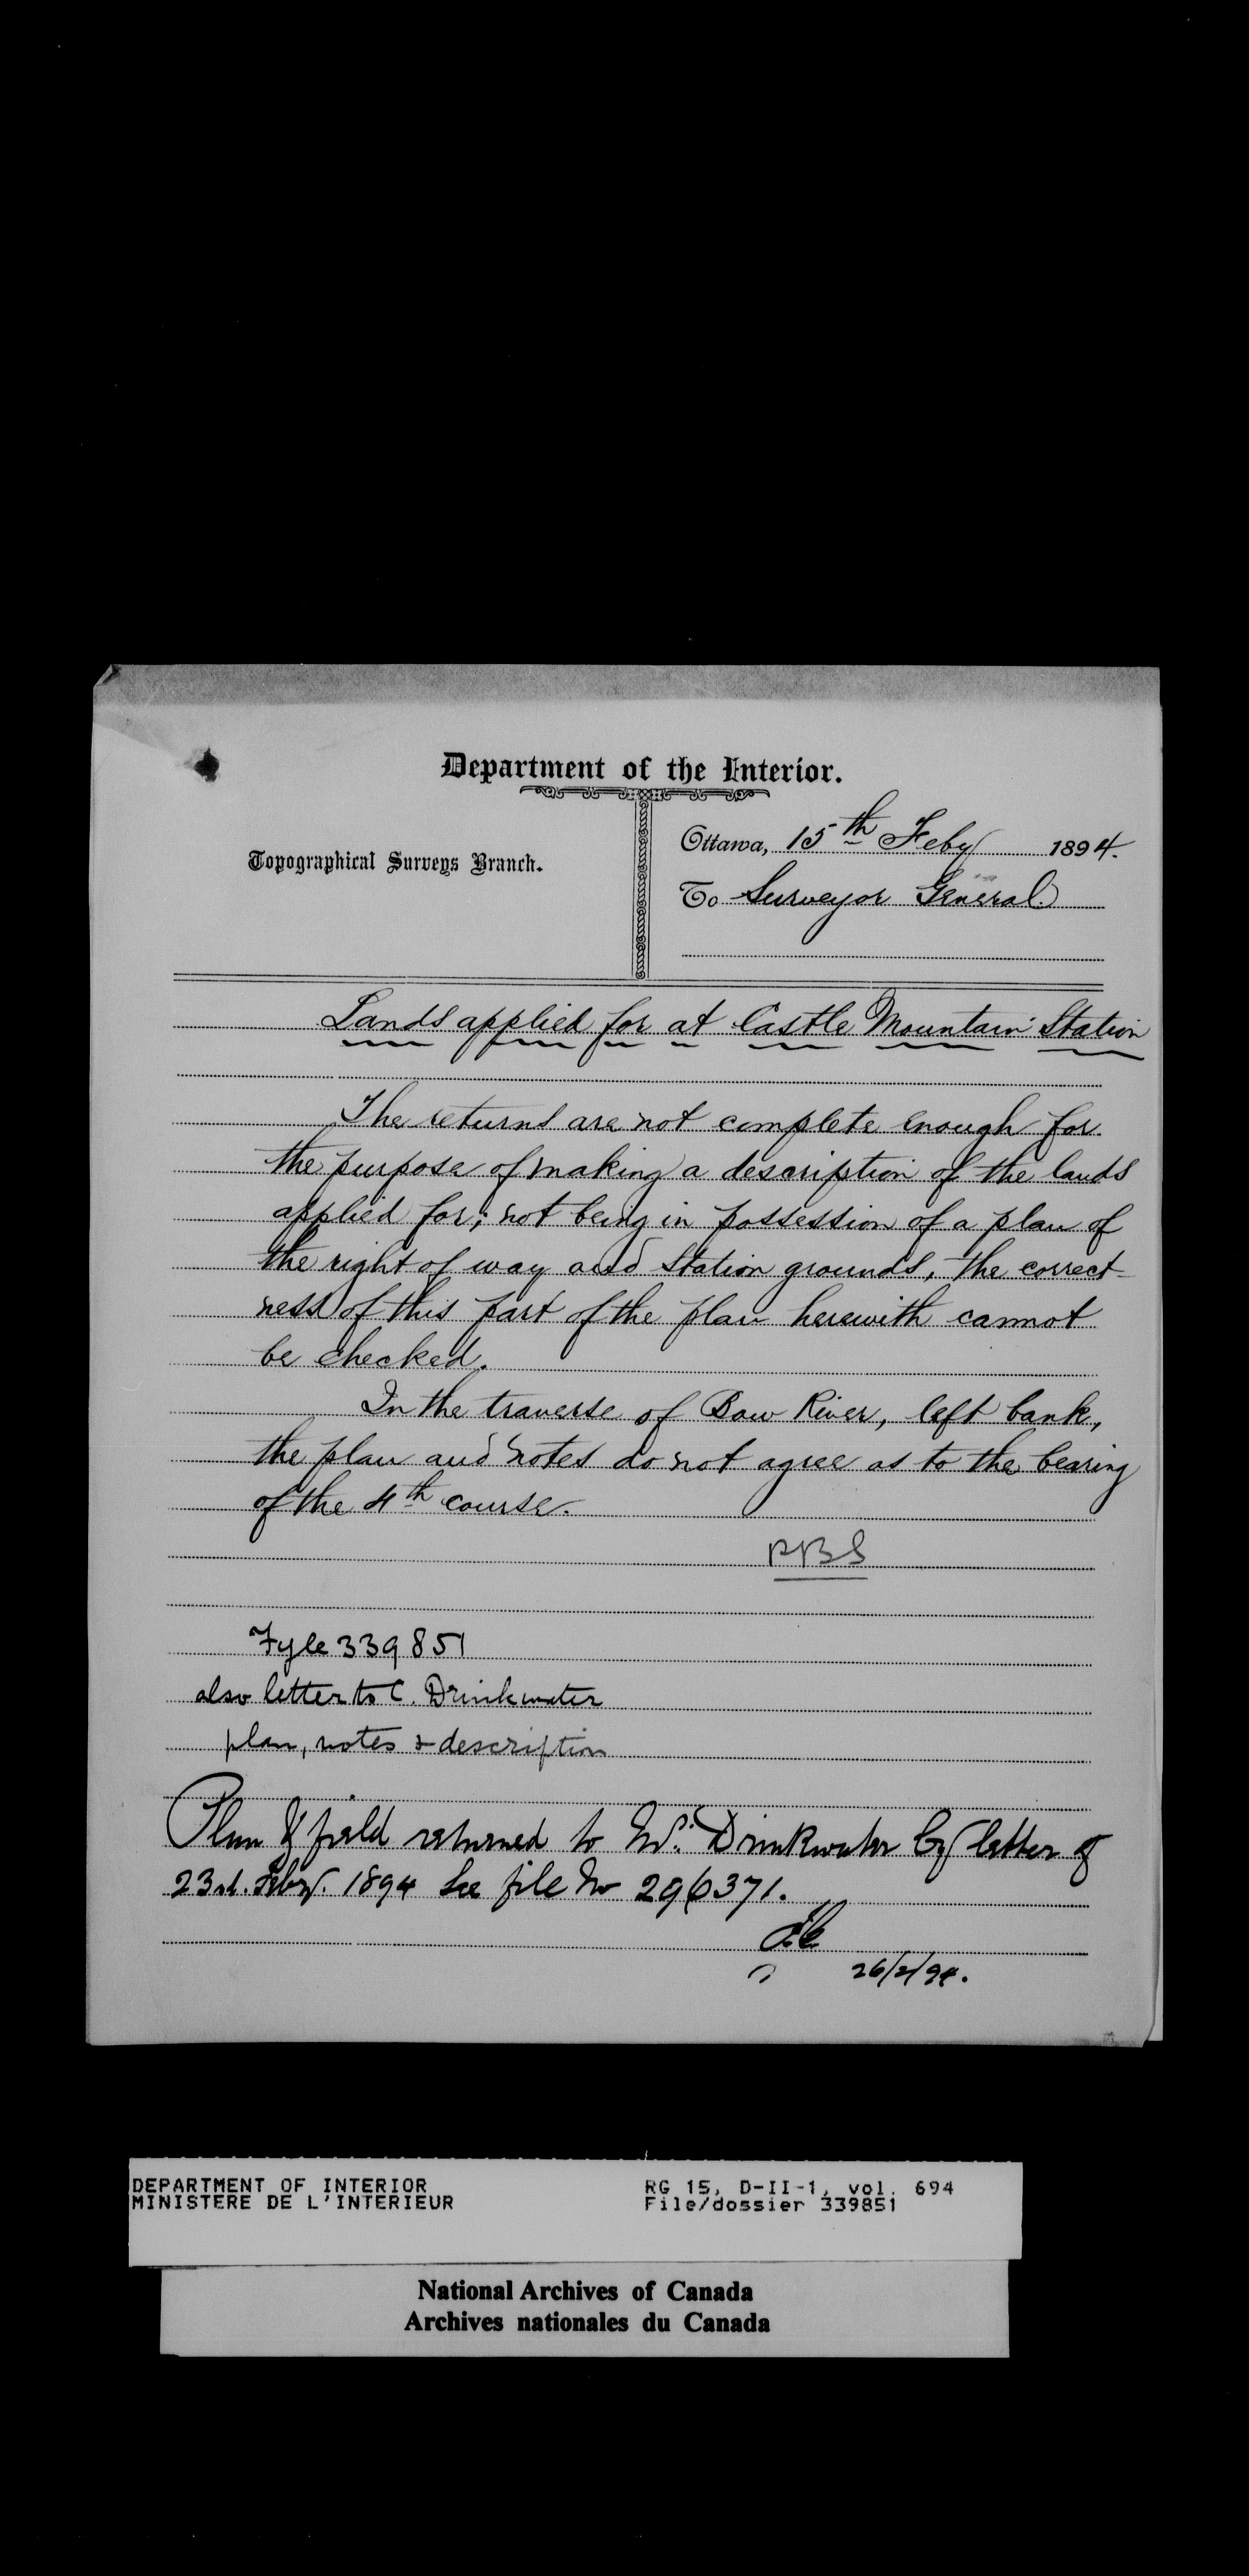 Department of the Interior.
Topographical Surveys Branch.
Ottawa, 15th Feby 1894.
To Surveyor General
Lands applied for at Castle Mountain Station
The returns are not complete enough for
the purpose of making a description of the lands
applied for; not being in possession of a plan of
the right of way and station grounds, the correct-
ness of this part of the plan herewith cannot
be checked.
In the traverse of Bow River, left bank,
the plan and notes do not agree as to the bearing
of the 4th course.
Fyle 339851
also letter to C. Drinkwater
plan, notes & description
Plan & field returned to Mr. Drinkwater by letter of
23rd. Feby. 1894 See file No 296371.
26/2/94.
DEPARTMENT OF INTERIOR
MINISTERE DE L'INTERIEUR
RG 15, D-II-1, vol. 694
File/dossier 339851
National Archives of Canada
Archives nationales du Canada